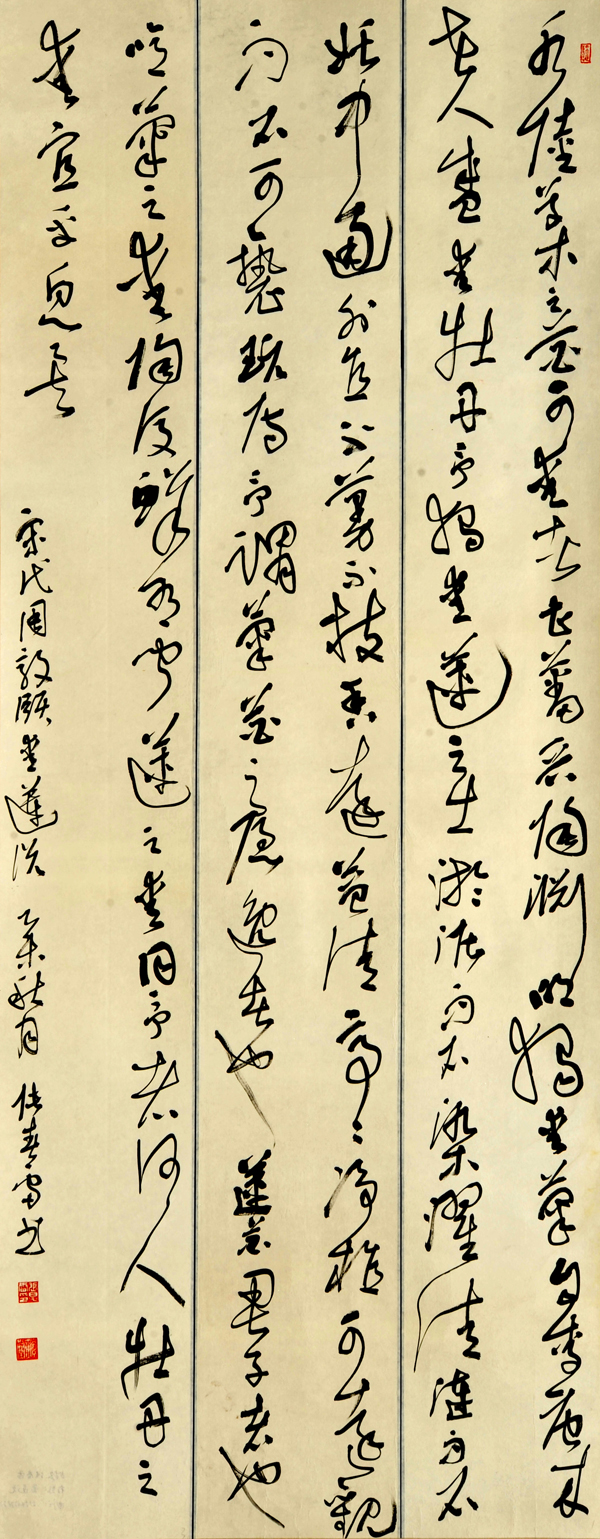 水陸草木之花可愛者甚蕃晋陶淵明獨愛菊自李唐来
世人盛愛牡丹予獨愛蓮之出淤泥而不染濯清漣而不
妖中通外直不蔓不枝香遠益清亭亭淨植可遠觀
而不可褻玩焉予謂菊花之隱逸者也蓮花君子者也
噫菊之愛陶後鮮有聞蓮之愛同予者何人牡丹之
愛宜乎衆矣
宋代周敦頤愛蓮说 乙未秋月 春雷书